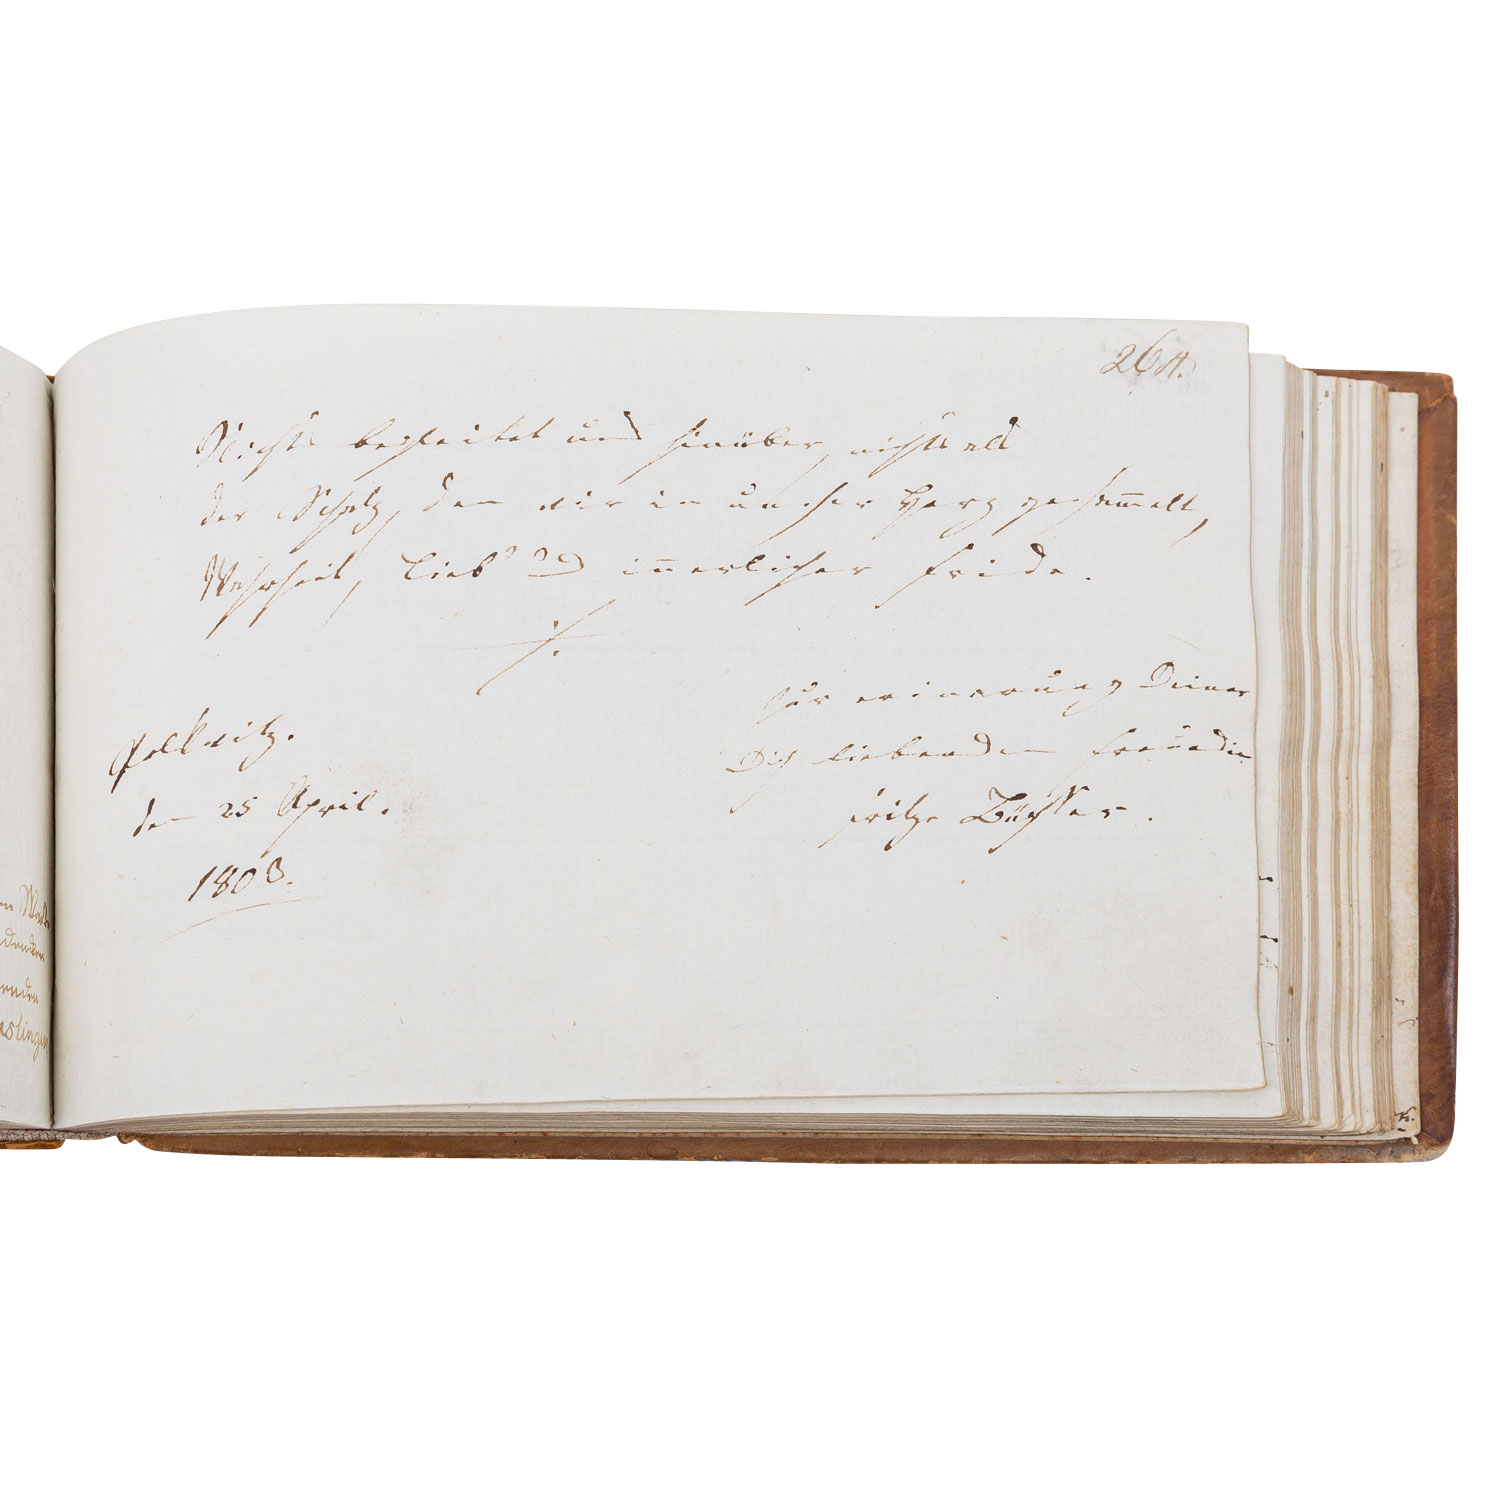 264.
Nichts begleitet uns hinüber, nichts als
der Schatz, den wir in unser Herz gesam̅elt,
Wahrheit, Lieb' und in̅erlicher Fride.
Zur erinerung Deiner
Dich liebenden Freundin
Fritze
Polkwitz.
den 25 April.
1803.